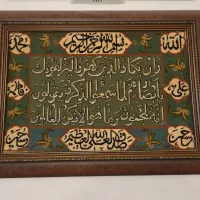 الله بسم الله الرحمن الرحيم محمد
وان يكاد الذين كفروا ليزلقونك
علی بابصارهم لما سمعوا الذكر ويقولون فاطمه
انه لمجنون وما هو الا ذكر للعالمين
حسن صدق الله العلي العظيم حسین